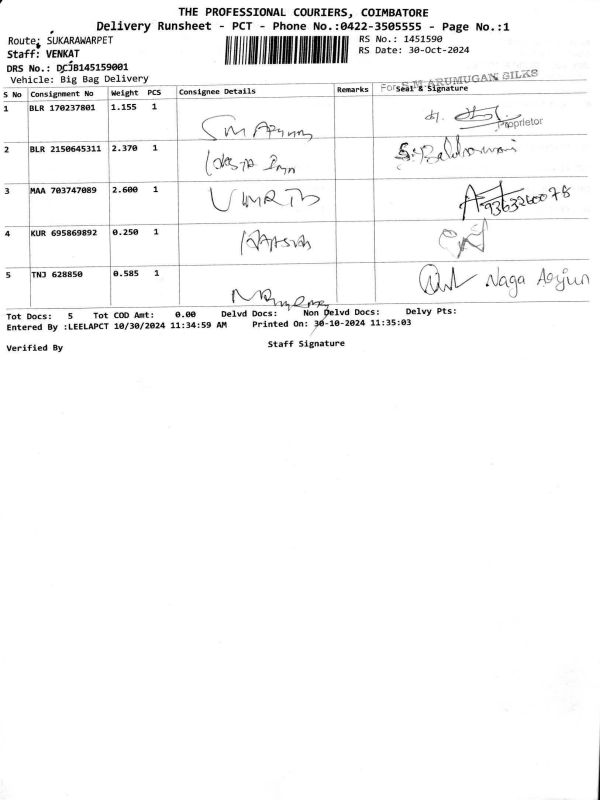 THE PROFESSIONAL COURIERS, COIMBATORE
Delivery Runsheet - PCT - Phone No.:0422-3505555 - Page No.:1
Route: SUKARAWARPET
RS No.: 1451590
Staff: VENKAT
RS Date: 30-Oct-2024
DRS No.: DCJB145159001
Vehicle: Big Bag Delivery
For S.M ARUMUGAN SILKS
S No Consignment No Weight PCS Consignee Details Remarks Seal & Signature
1 BLR 170237801 1.155 1
Proprietor
2 BLR 2150645311 2.370 1
3 MAA 703747089 2.600 1
9363260078
4 KUR 695869892 0.250 1
5 TNJ 628850 0.585 1 Naga Arjun
Tot Docs: 5 Tot COD Amt: 0.00 Delvd Docs: Non Delvd Docs: Delvy Pts:
Entered By :LEELAPCT 10/30/2024 11:34:59 AM Printed On: 30-10-2024 11:35:03
Verified By Staff Signature